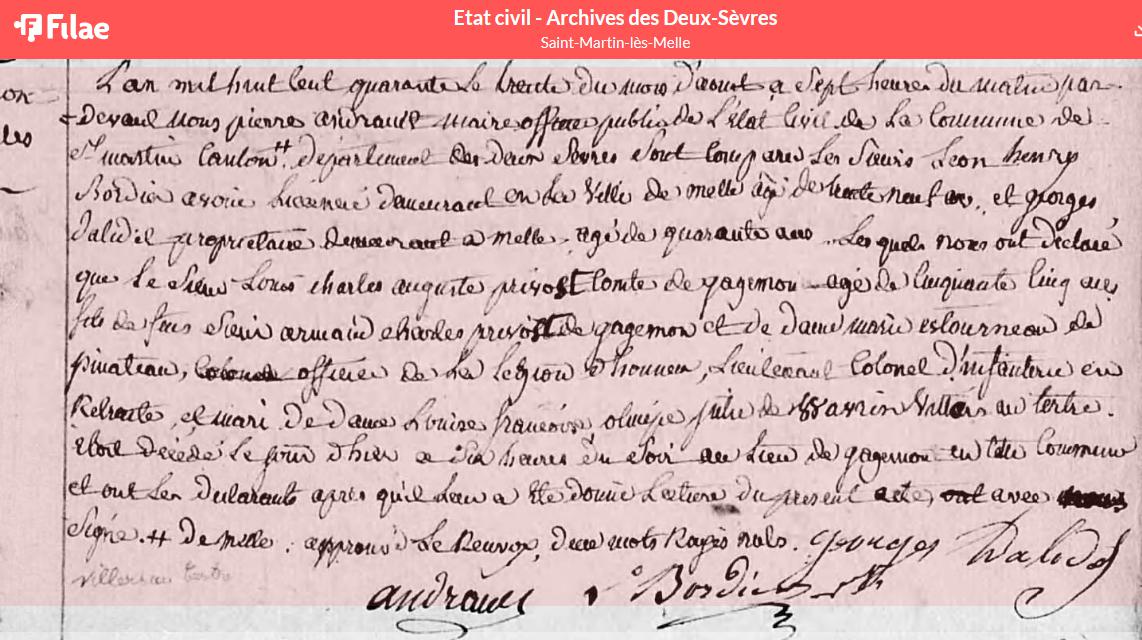 Filae
Etat civil - Archives des Deux-Sèvres
Saint-Martin-lès-Melle
L'an mil huit cent quarante Le trente du mois d'aoust a Sept heures du matin par-
Devant Nous pierre andrault maire officier public de L'état Civil de La Commune de
St martin Canton ++ département des deux Sèvres Sont Comparu Les Sieurs Leon henry
Bordier avoué Licencié demeurant en La Ville de melle âgé de trente neuf ans, et georges
Dalidet propriétaire demeurant a melle, agé de quarante ans Les quels nous ont déclaré
que Le Sieur Louis charles auguste prevost Comte de gagemon agé de Cinquante Cinq ans
fils de feus Sieur armand charles prevost de gagemon et de dame marie estourneau de
pinateau, officier de La Légion d'honneur, Lieutenant Colonel d'infanterie en
Retraite, et mari de dame Louise françoise olimpe julie de Wavrin Villers au tertre.
étoit décédé Le jour d'hier a Six heures du Soir au Lieu de gagemon en cette Commune
et ont Les déclarants après qu'il Leur a été donné Lecture du présent acte, ont avec nous
Signé. ++ de melle. approuvé Le Renvoy, deux mots Rayés nuls. georges Dalidet
villers au tertre
andrault Bordier
on
les